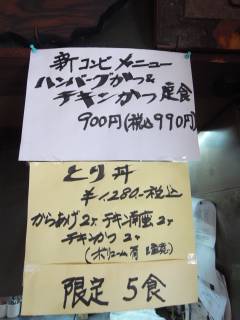 新コンビメニュー
ハンバーグかつ&
チキンかつ定食
900円(税込990円)
とり丼
¥1,280-税込
からあげ2ヶ チキン南蛮2ヶ
チキンかつ2ヶ
(ボリューム有
限定 5食